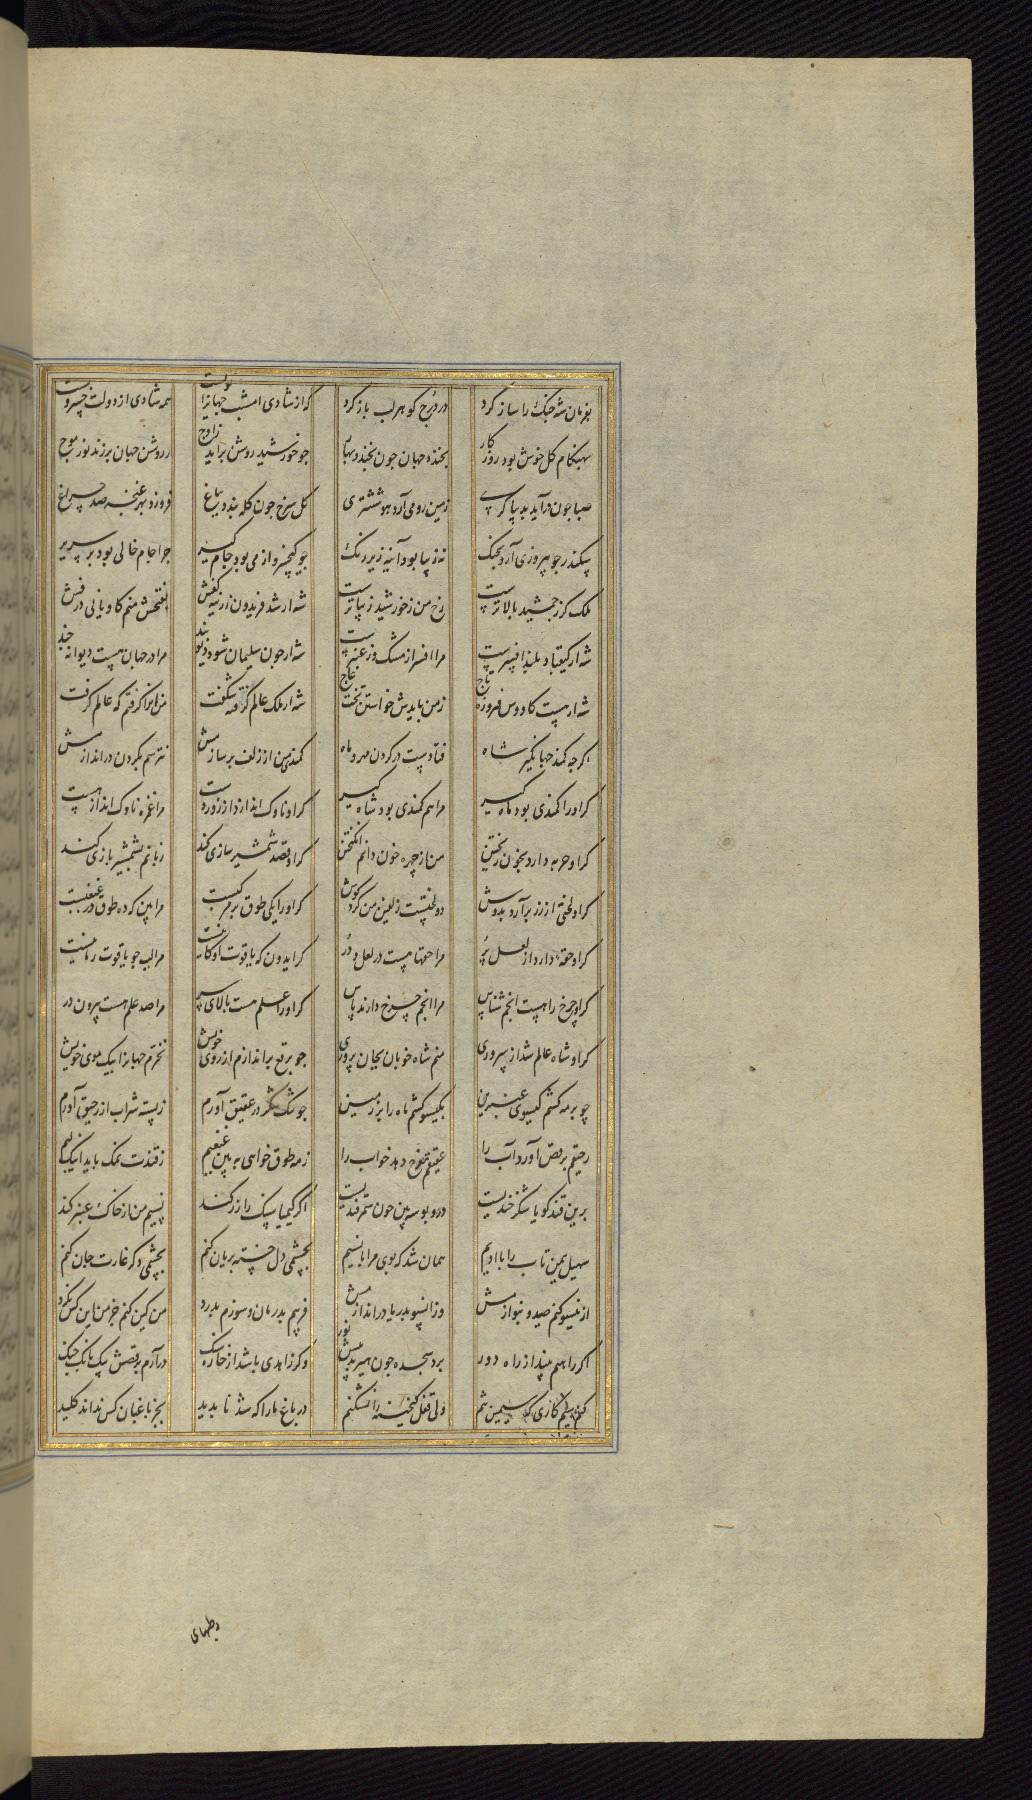 بفرمان شه چنک را ساز کرد در درج کوهر ز لب باز کرد که از شادی امشب جهانرا نوست همه شادی از دولت خسروست
بهنکام کل خوش بود روزکار بخندد جهان چون بخندد بهار چو خورشید روشن براید ز اوج ز روشن جهان برزند نور موج
صبا چون درآید بدیبا کری زمین رومی آرد هوا ششتری کل سرخ چون کله بندد بباغ فروزد بهر غنچه صد چراغ
سکندر چو پیروزی آرد بچنک نه زیبا بود آینه زیر زنک چو کیخسرو از می بود جام کیر چرا جام خالی بود بر سریر
ملک کر ز جمشید بالاترست رخ من ز خورشید زیباترست شه ار شد فریدون زرینه کفش بفتحش منم کاویانی درفش
شه ار کیقباد بلند افسرست مرا افسر از مشک وز عنبرست شه ار چون سلیمان شود دیو بند مرا در جهان هست دیوانه چند
شه ار هست کاووس فروزه تاج ز من بایدش خواستن تخت عاج شه ار ملک عالم کرفته شکفت من انرا کرفتم که عالم کرفت
اکر چه کمند جهانکیر شاه فتادست در کردن مهر و ماه کمندی من از زلف برسازمش نترسم بکردن دراندازمش
کر اورا کمندی بود ماه کیر مرا هم کمندی بود شاه کیر کر او ناوک اندازد از زور دست مرا غمزه ناوک انداز هست
کر او حربه دارد بخون ریختن من از چهره خون دانم انکیختن کر او قصد شمشیر سازی کند زبانم بشمشیر بازی کند
کر او لختی از زر برآرد بدوش دو لختست زلفین من کرد کوش کر اورا یکی طوق بر مرکبست مرا بین که ده طوق در غبغبست
کر او حقه دارد از لعل پر مرا حقهاهست در لعل و در کر ایدون که یاقوت او کانیست مرا لب چو یاقوت رمانیست
کر او چرخ را هست انجم شناس مرا انجم چرخ دارند پاس کر اورا علم هست بالای سر مرا صد علم هست بیرون در
کر او شاه عالم شد از سروری منم شاه خوبان بجان پروری چو برقع براندازم از روی خویش نخرم جهانرا بیک موی خویش
چو بر مه کشم کیسوی عنبرین بکیسو کشم ماه را بر زمین چو تنک شکر در عقیق آورم ز پسته شراب از رحیق آورم
رحیقم برقص آورد آب را عقیقم مفرح دهد خواب را ز مه طوق خواهی ببین غبغبم ز قندت نمک باید اینک لبم
بدین قند کویا شکر خندیست درو بوسه بین چون سمرقندیست اکر کیمیا سنک را زر کند نسیم من از خاک عنبر کند
سهیل یمن تاب را با ادیم همان شد که بوی مرا با نسیم بچشمی دل خسته بریان کنم بچشمی دکر غارت جان کنم
ازین سو کنم صید و بنوازمش وزانسو بدریا دراندازمش فریبم بدرمان و سوزم بدرد من کین کنم جز من این کس نکرد
اکر راهبم بیند از راه دور برد سجده چون هیربد پیش نور وکر زاهدی باشد از خاره سنک درآرم برقصش بیک بانک چنک
کنم سیم کاری که سیمین تنم ولی قفل کنجینه را نشکنم در باغ مارا که شد ناپدید بجز باغبان کس نداند کلید
رطبهای